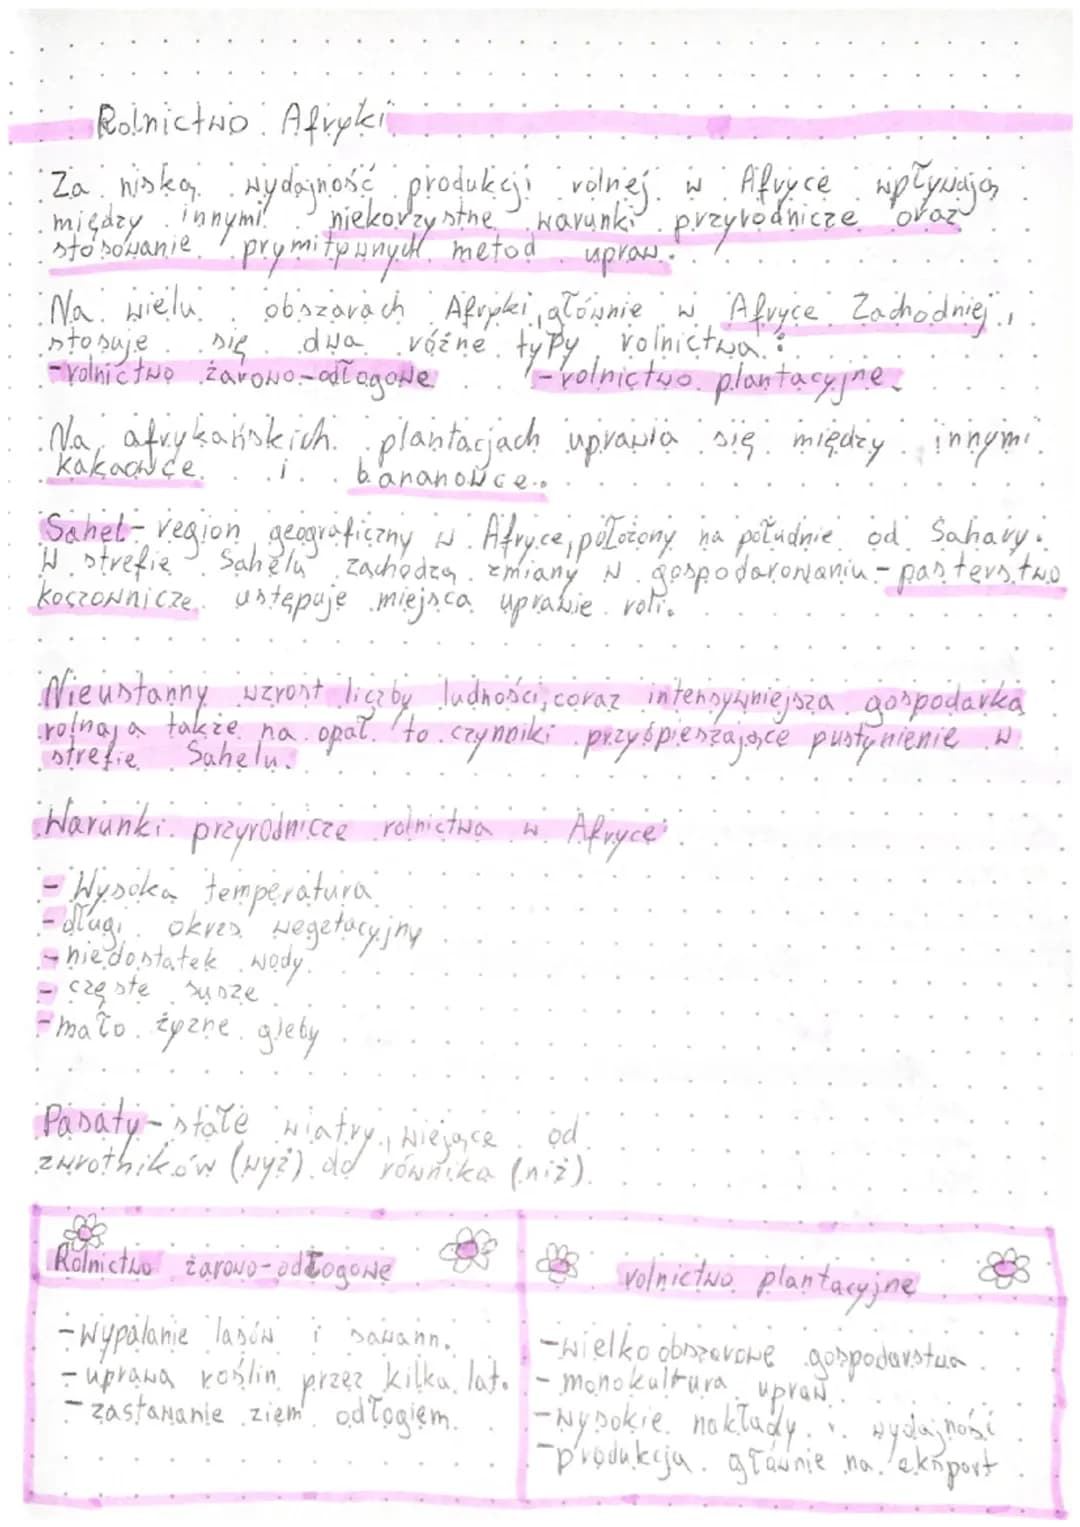 Rolnictwo Afryki
Za niską wydajność produkcji rolnej w Afryce wpływają
między innymi niekorzystne warunki przyrodnicze oraz
stosowanie prymitywnych metod upraw.
Na wielu obszarach Afryki, głównie w Afryce Zachodniej,
stosuje się dwa różne typy rolnictwa:
-rolnictwo żarowo-odłogowe -rolnictwo plantacyjne
Na afrykańskich plantacjach uprawia się między innymi
kakaowce i bananowce.
Sahel- region geograficzny w Afryce, położony na południe od Sahary.
W strefie Sahelu zachodzą zmiany w gospodarowaniu - pasterstwo
koczownicze ustępuje miejsca uprawie roli.
Nieustanny wzrost liczby ludności, coraz intensywniejsza gospodarka
rolna, a także na opał to czynniki przyśpieszające pustynienie w
strefie Sahelu.
Warunki przyrodnicze rolnictwa w Afryce:
- Wysoka temperatura
- długi okres wegetacyjny
- niedostatek wody
- częste susze
- mało żyzne gleby
Pasaty- stałe wiatry, wiejące od
zwrotników (wyż) do równika (niż).
Rolnictwo żarowo-odłogowe
-Wypalanie lasów i sawann.
- uprawa roślin przez kilka lat.
- zastawanie ziem odłogiem.
rolnictwo plantacyjne
-wielkoobszarowe gospodarstwa
- monokultura upraw
-wysokie nakłady i wydajność
-produkcja głównie na eksport